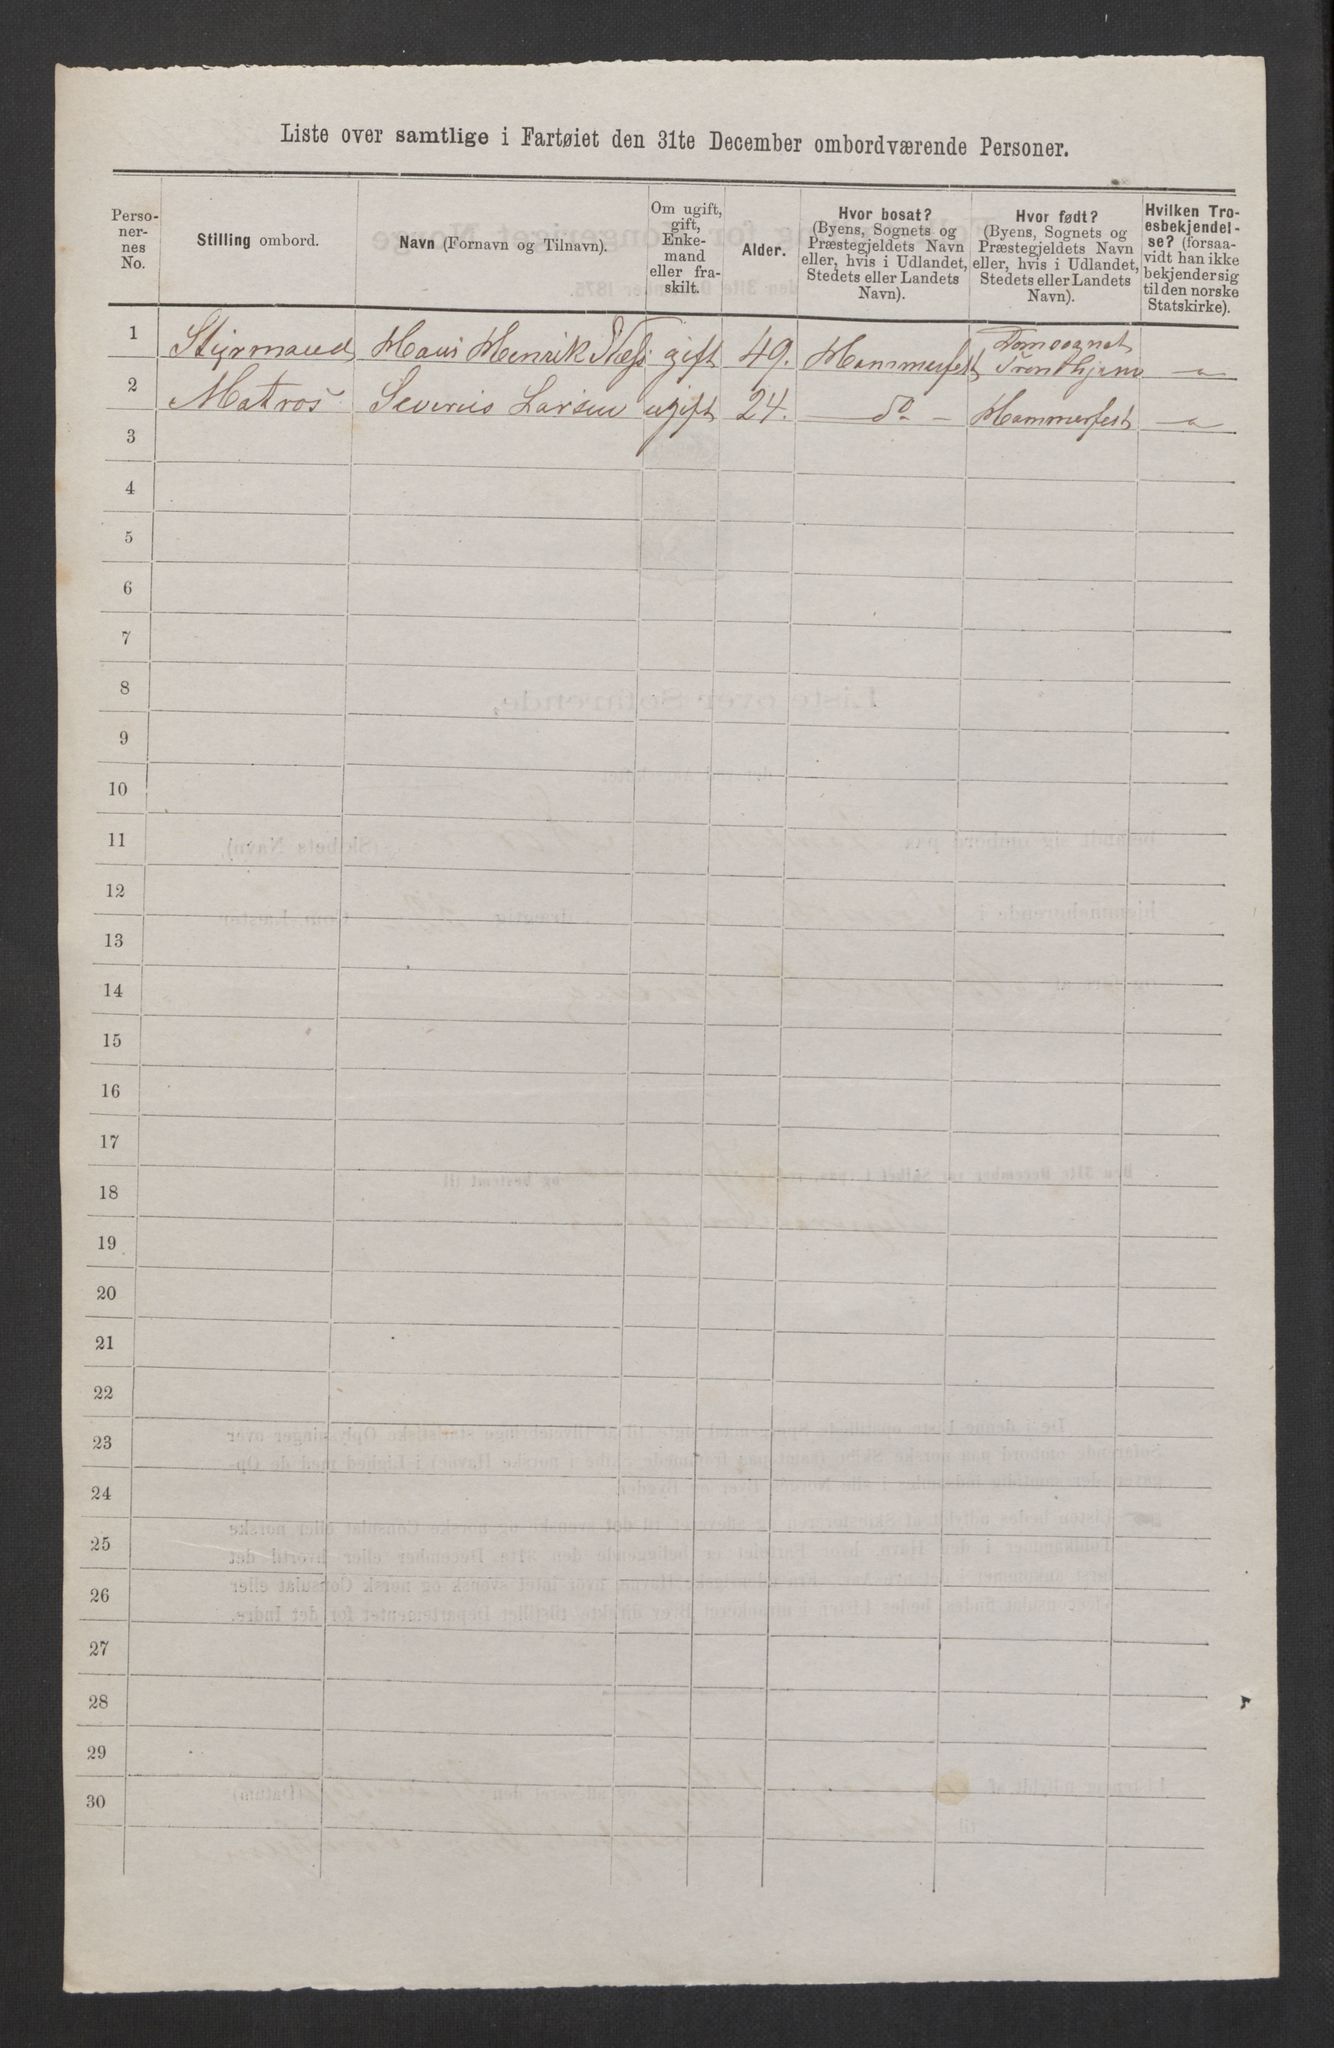 Liste over samtlige i Fartøiet den 31te December ombordværende Personer.
Perso-
ner-
nes
No.
Stilling ombord.
Navn (Fornavn og Tilnavn).
Om ugift,
gift,
Enke-
mand
eller fra-
skilt.
Alder.
Hvor bosat?
(Byens, Sognets og
Præstegjeldets Navn
eller, hvis i Udlandet,
Stedets eller Landets
Navn).
Hvor født?
(Byens, Sognets og
Præstegjeldets Navn
eller, hvis i Udlandet,
Stedets eller Landets
Navn).
Hvilken Tro-
esbekjendel-
se? (forsaa-
vidt han ikke
bekjender sig
til den norske
Statskirke).
1 Styrmand Hans Henrik gift 49. Hammerfest Domsognet
Trondhjem
2 Matros Severin Larsen ugift 24. — do — Hammerfest
3
4
5
6
7
8
9
10
11
12
13
14
15
16
17
18
19
20
21
22
23
24
25
26
27
28
29
30